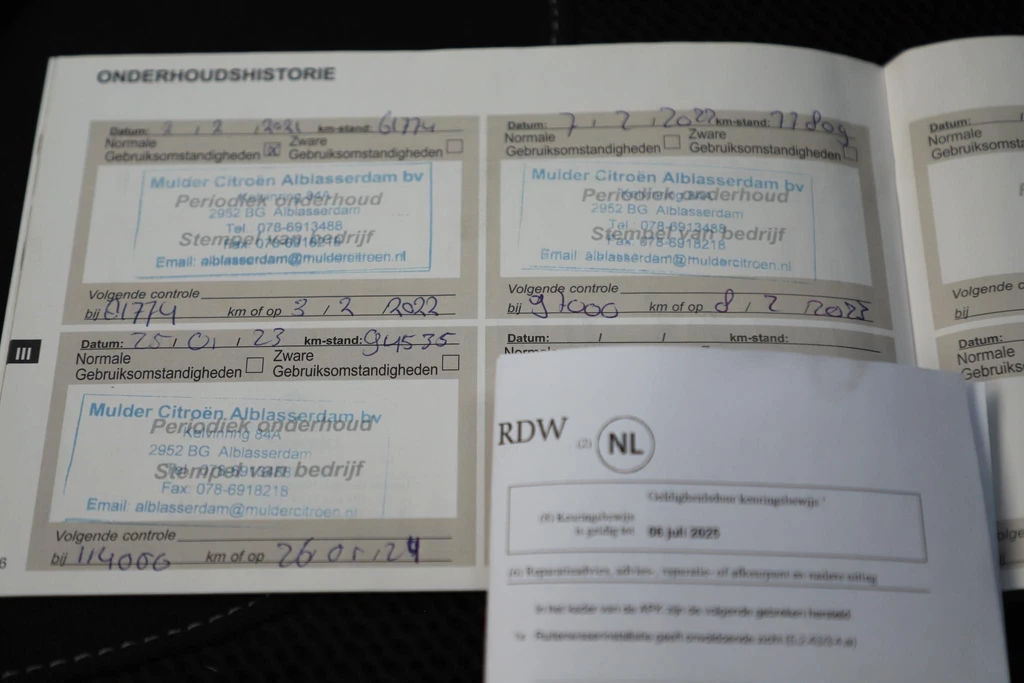 ONDERHOUDSHISTORIE
Datum: 2 / 2 / 2021 km-stand: 61774
Normale
Gebruiksomstandigheden
Zware
Gebruiksomstandigheden
Mulder Citroën Alblasserdam bv
Kelvinring 84A
Periodiek onderhoud
2952 BG Alblasserdam
Tel. 078-6913488
Stempel van bedrijf
Fax 078-6918218
Email: alblasserdam@muldercitroen.nl
Volgende controle
bij 81774 km of op 3 / 2 / 2022
Datum: 7 / 2 / 2022 km-stand: 77809
Normale
Gebruiksomstandigheden
Zware
Gebruiksomstandigheden
Mulder Citroën Alblasserdam bv
Kelvinring 84A
Periodiek onderhoud
2952 BG Alblasserdam
Tel. 078-6913488
Stempel van bedrijf
Fax 078-6918218
Email: alblasserdam@muldercitroen.nl
Volgende controle
bij 97000 km of op 8 / 2 / 2023
III
Datum: 25 / 01 / 23 km-stand: 94535
Normale
Gebruiksomstandigheden
Zware
Gebruiksomstandigheden
Mulder Citroën Alblasserdam bv
Periodiek onderhoud
Kelvinring 84A
2952 BG Alblasserdam
Tel. 078-6913488
Stempel van bedrijf
Fax: 078-6918218
Email: alblasserdam@muldercitroen.nl
Volgende controle
bij 114000 km of op 26 / 01 / 24
6
Datum: / / km-stand:
Datum:
Normale
Gebruiksomsta
Volgende c
bij
Datum:
Normale
Gebruiks
RDW (2) NL
Geldigheidsduur keuringsbewijs
(8) Keuringsbewijs
is geldig tot 06 juli 2025
(6) Reparatieadvies, advies-, reparatie- of afkeurpunt en nadere uitleg
In het kader van de APK zijn de volgende gebreken hersteld
Ruitenwisserinstallatie geeft onvoldoende zicht